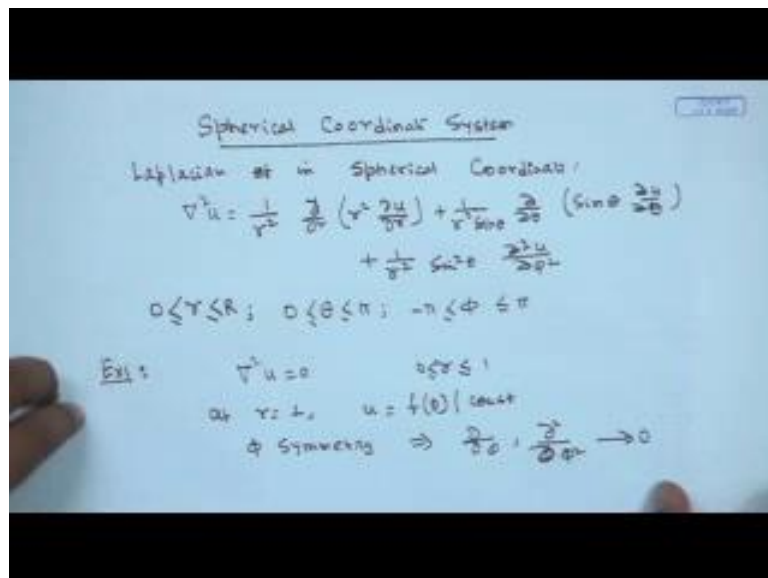 Spherical Coordinat System
Laplacian in Spherical Coordinat:
∇²u = 1/r² ∂/∂r (r² ∂u/∂r) + 1/r² sinθ ∂/∂θ (sinθ ∂u/∂θ)
+ 1/r² sin²θ ∂²u/∂φ²
0≤r≤R; 0≤θ≤π; -π≤φ≤π
Ex1: ∇²u=0 0≤r≤1
at r=1, u= f(θ) | const
φ symmetry ⇒ ∂/∂φ, ∂²/∂φ² → 0